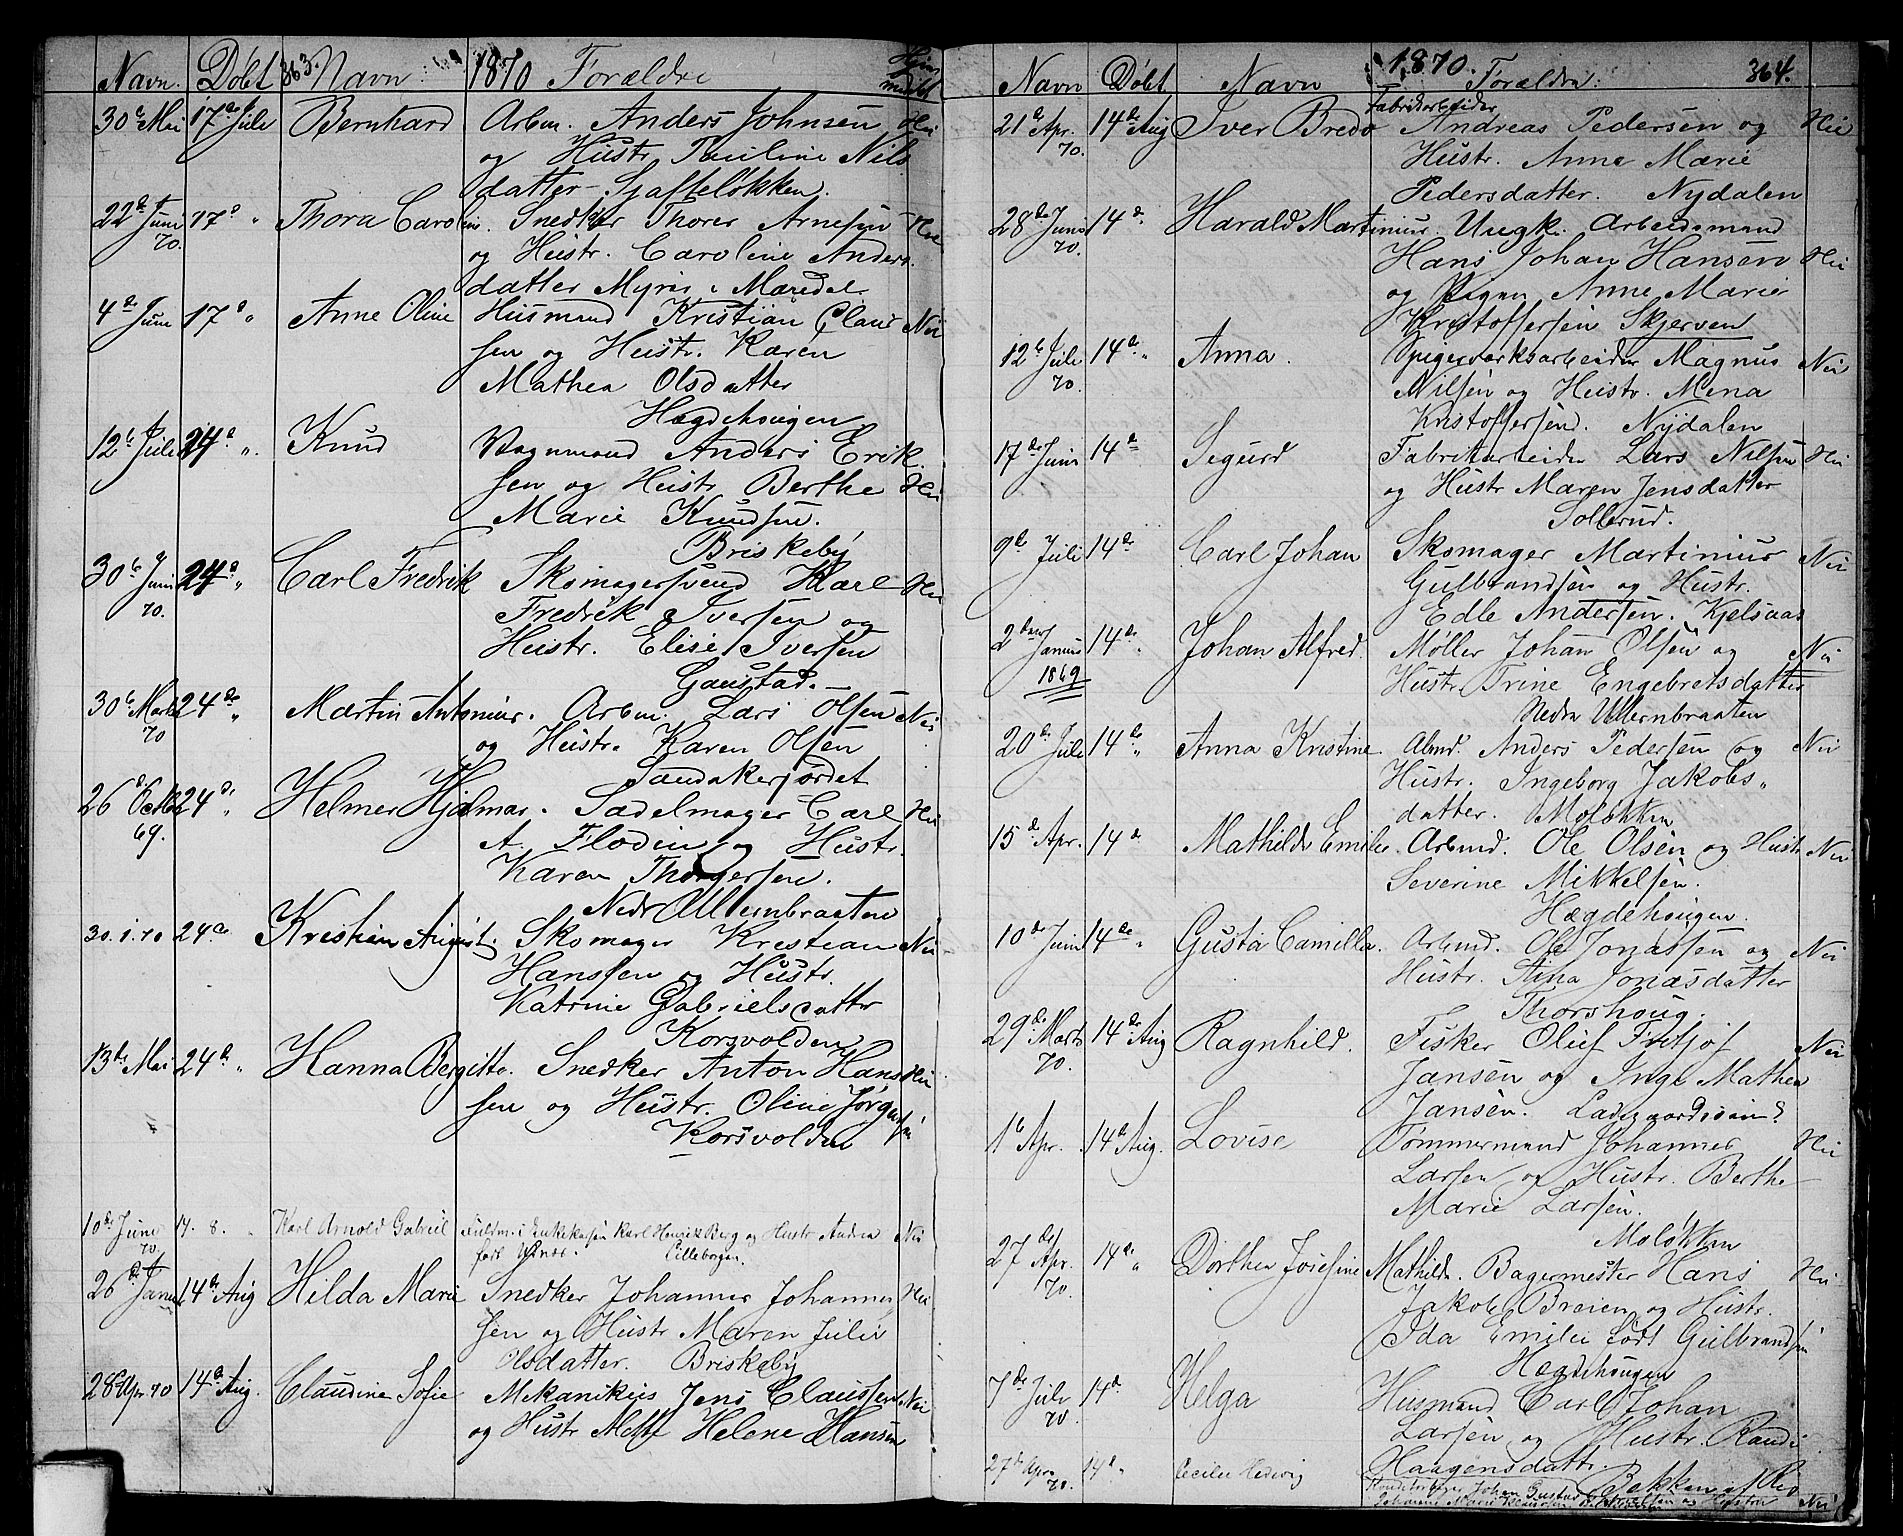 Navn. Døbt 363. Navn 1870 Forældre Hjemmedøbt
30te Mai 17de Juli Bernhard Arbm. Anders Johnsen Nei
og Hustr. Pauline Nils
datter
22de Juni 70. 17de " Thora Carolin. Snedker Thorer Arnesen Nei
og Hustr. Caroline Anders.
datter Myrer i Maridal.
4de Juni 17de " Anne Oline Husmand Kristian Claus Nei
sen og Hustr. Karen
Mathea Olsdatter
Hægdehougen
12te Juli 24de ". Knud Vognmand Anders Erik.
sen og Hustr Berthe Nei
Marie Knudsen.
Briskeby
30te Juni 70. 24de " Carl Fredrik Skomagersvend Karl Nei
Fredrik Iversen og
Hustr. Elise Iversen
Gaustad.
30te Marts 70 24de " Martin Antonius. Arbm. Lars Olsen Nei
og Hustr. Karen Olsen
Sandakerjordet
26de Octbr 69. 24de " Helmer Hjalmar. Sadelmager Carl Nei
A. Flodin og Hustr.
Karen Thorgersen.
Nedr Ullernbraaten
30.1.70 24de Kristian August. Skomager Kristian Nei
Hanssen og Hustr.
Katrine Gabrielsdattr
Korsvolden
13de Mai 24de " Hanna Bergitte. Snedker Anton Hans Nei
sen og Hustr. Oline Jørgensen
Korsvolden
10de Juni 70 17. 8. " Karl Arnold Gabriel Fuldm. i Enkekassen Karl Henrik Berg og Hustr Andrea Nei
født Lillebogen.
26de Januar 14de Aug Hilda Marie Snedker Johannes Johannes Nei
sen og Hustr Maren Julie
Olsdatter. Briskeby
28de Apr 70 14de Aug. Claudine Sofie Mekanikus Jens Claussen Nei
og Hustr Helene Hansen
Navn Døbt Navn 1870. Forældre. 364.
21de Apr. 70. 14de Aug Iver Bredo Fabrikarbeider Andreas Pedersen og Nei
Hustr. Anne Marie
Pedersdatter. Nydalen
28de Juni 70. 14de. Harald Martinius. Ungk. Arbeidsmand
Hans Johan Hansen Nei
og Pigen Anne Marie
Kristoffersen Skjerven
12te Juli 70. 14de. " Anna. Spigerverksarbeider Magnus Nei
Nilsen og Hustr. Mena
Kristoffersen. Nydalen
17de Juni 14de Sigurd Fabrikarbeider Lars Nilsen Nei
og Hustr Maren Jensdatter
Sollerud.
9de Juli 14de Carl Johan Skomager Martinius Nei
Gulbrandsen og Hustr.
Edle Andersen. Kjelsaas
2den Januar 1869 14de " Johan Alfred. Møller Johan Olsen og Nei
Hustr. Trine Engebretsdatter
Nedre Ullernbraaten
20de Juli 14de " Anna Kristine. Abmd. Anders Pedersen og Nei
Hustr. Ingeborg Jakobs„
datter. Moløkken
15de Apr. 14de Mathilde Emilie. Arbmd. Ole Olsen og Hustr Nei
Severine Mikkelsen.
Hægdehougen.
10de Juni 14de " Gusta Camilla. Arbmd. Ole Jonassen og Nei
Hustr. Stina Jonasdatter
Thorshoug.
29de Marts 70. 14de Aug Ragnhild. Fisker Oluf Fritjof Nei
Jansen og Inge Mathea
Jansen.
1te Apr. 14de Aug. Lovise Tømmermand Johannes Nei
Larsen og Hustr. Berthe
Marie Larsen.
Moløkken
27de Apr. 70. 14de " Dorthea Josefine Mathilde. Bagermester Hans Nei
Jakob Breien og Hustr.
Ida Emilie født Gulbrandsen
Hægdehougen
7de Juli 70. 14de Helga Husmand Carl Johan
Larsen og Hustr. Randi
Haagensdattr. Bekken
27de Apr. 70. 14de " Cecilie Hedevig Johan Gustav og Hustru Nei
Johanne Marie